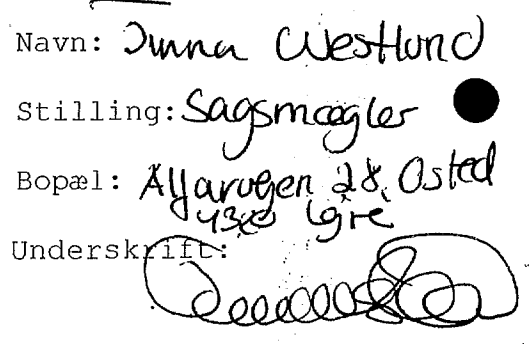 Navn: Dunna Westlund
Stilling: Sagsmægler
Bopæl: Ålfarvegen 28, Osted
4320 Lejre
Underskrift: